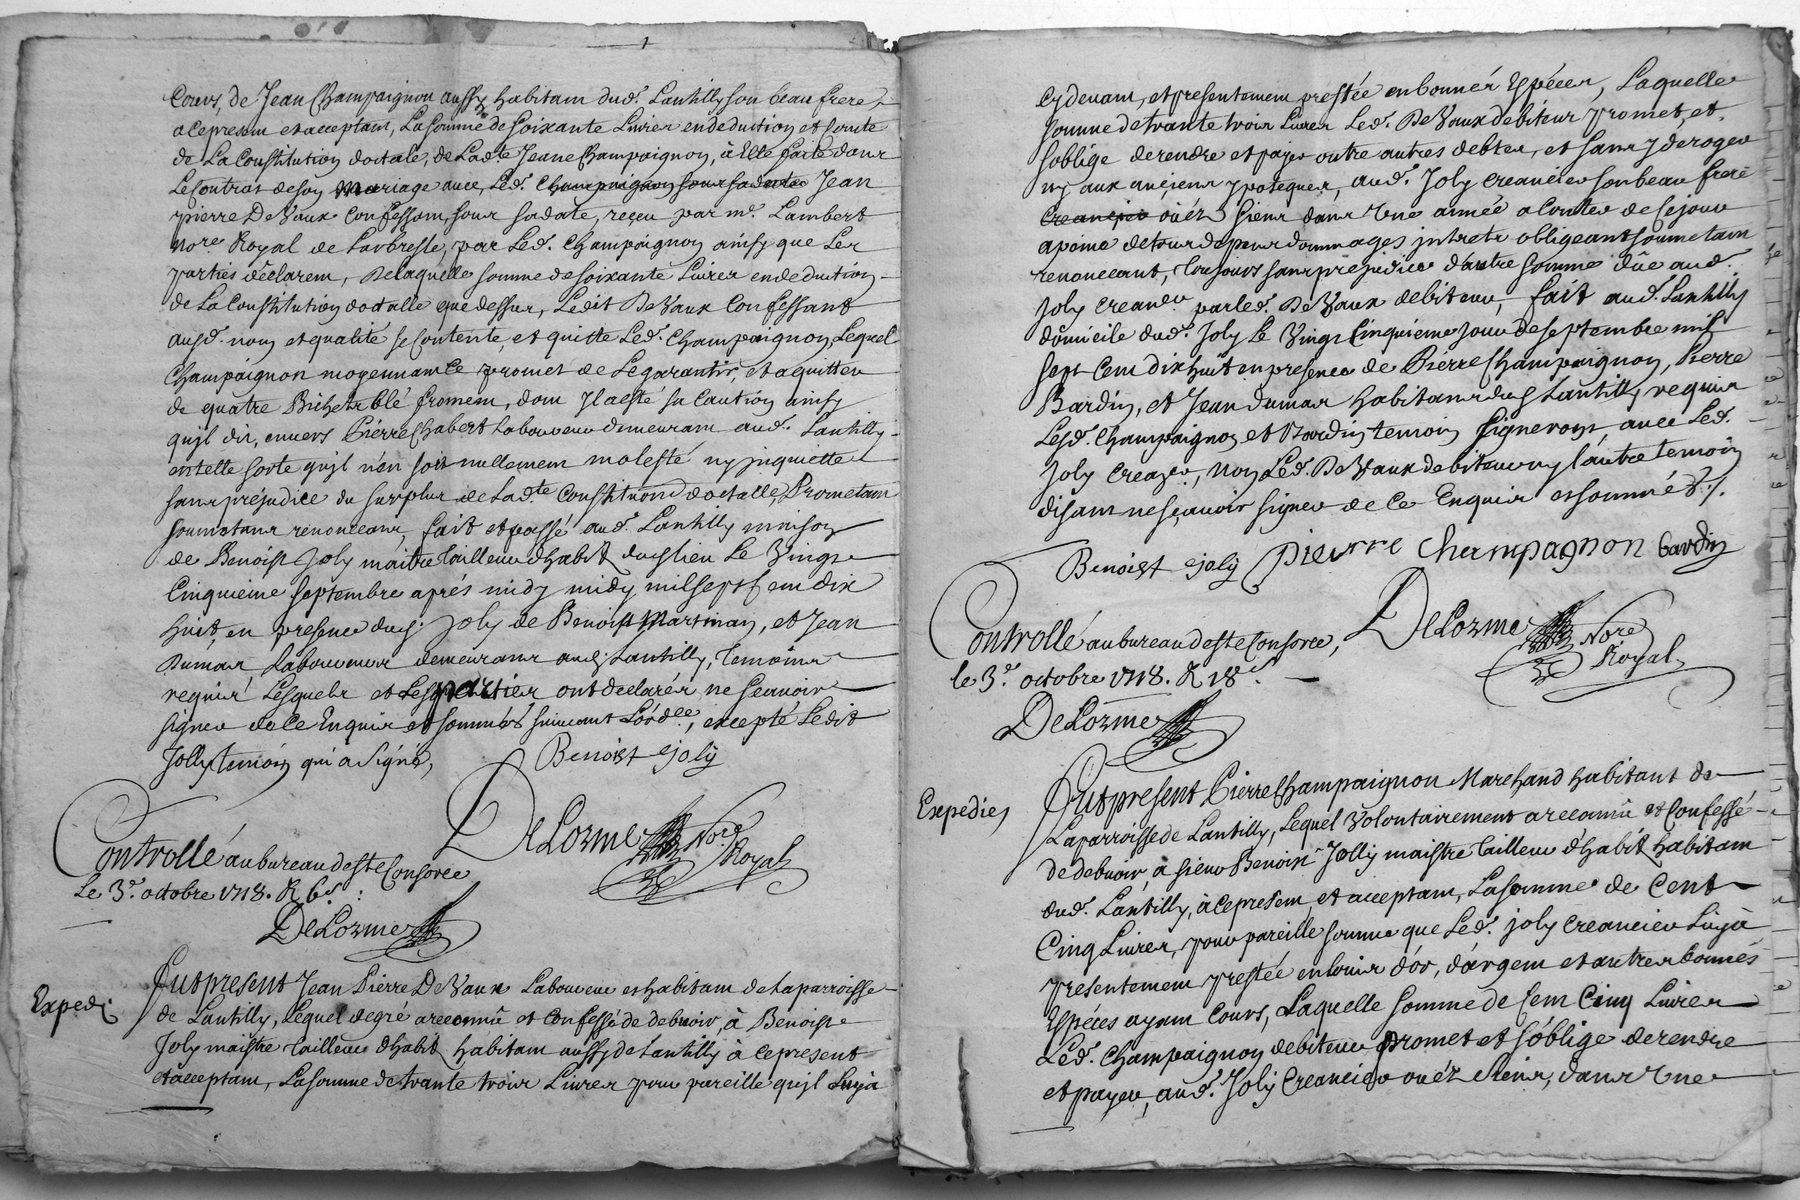 Cours, de Jean Champaignon aussy habitam dud. Lantilly son beau frere
a ce presem et acceptam, La somme de soixante Livres en deduction et sorte
de La Constitution dotale, de Ladte Jeane Champaignon, à Elle faite dans
Le Contrat de son Mariage avec, Led. Champaignon sous sa datte Jean
pierre De Vaux Confessam, sous sa date, reçeu par me. Lambert
nore Royal de Larbresle, par Led. Champaignon ainsy que Les
parties déclarem, De laquelle somme de soixante Livres en deduction
de La Constitution dotalle que dessus, Ledit De Vaux Confessant
aud. nom et qualité se Contente, et quitte Led. Champaignon, Lequel
Champaignon moyennam Ce promet de Le garantir, et aquitter
de quatre Bichets blé fromem, dom Jl a esté sa Caution ainsy
qujl dit, envers Pierre Chabert Laboureur demeuram aud. Lantilly
en telle sorte qujl n'en soit nullemem molesté ny jnquietté
sans prejudice du surplus de Ladte Constituon dotalle, Prometam
soumetans renonceans, fait et passé aud. Lantilly maison
de Benoist Joly maitre Tailleur d'habit dud. lieu Le Vingt
Cinquieme septembre aprés midy midy mil sept Cem dix
huit, en presence dud. Joly de Benoist Martinan, et Jean
Dumas Laboureurs demeurans aud. Lantilly, Temoins
requis Lesquels et Les parties ont declarés ne scavoir
signer de Ce Enquis et sommés suivant L'ordce, excepté Ledit
Jolly temoin qui a signé,
Benoist Joly
DeLorme Nore
Royal
Controllé au bureau d'este Consorce
Le 3e. octobre 1718. R 6s.
DeLorme
Expedié
Fut present Jean Pierre De Vaux Laboureur et habitam de La parroisse
de Lantilly, Lequel de gré a reconnu et Confessé de debvoir, à Benoist
Joly maistre Tailleur d'habit habitam aussy de Lantilly à Ce present
et acceptam, La somme de trante trois Livres pour pareille qujl Luy a
Cy devam, et presentemem prestée en bonnes Espéces, Laquelle
somme de trante trois Livres Led. De Vaux debiteur promet, et
s'oblige de rendre et payer outre autres debtes, et sans y deroger
ny aux anciens ypoteques, aud. Joly Creancier son beau frere
Creancier ou és siens dans Une année a Conter de Ce jour
a peine de tous depens dommages jntretz obligeant soumetam
renonceant, Toujours sans prejudice d'autre somme dûe aud.
Joly Creancr. par Led. De Vaux debiteur, fait aud. Lantilly
domicile dud. Joly Le Vingt Cinquieme jour de septembre mil
sept Cem dix huit en presence de Pierre Champaignon, Pierre
Bardin, et Jean dumas habitans dud. Lantilly, requis
Lesd. Champaignon et Bardin temoins signerons avec Led.
Joly Creancr, non Led. De Vaux debiteur ny l'autre temoin
disam ne sçavoir signer de Ce Enquis et sommés.
Benoist Joly Pierre Champagnon bardin
DeLorme Nore
Royal
Controllé au bureau d'este Consorce,
le 3e. octobre 1718. R 18s.
DeLorme
Expediés
Fut present Pierre Champaignon Marchand habitant de
La parroisse de Lantilly, Lequel Volontairement a reconnû et Confessé
de debvoir, à sieur Benoist Jolly maistre Tailleur d'habit habitam
dud. Lantilly, à Ce presem et acceptam, La somme de Cent
Cinq Livres, pour pareille somme que Led. joly Creancier Luy a
presentemem prestée en Louis d'or, d'argem et autres bonnes
Espéces ayam Cours, Laquelle somme de Cem Cinq Livres
Led. Champaignon debiteur promet et s'oblige de rendre
et payer, aud. Joly Creancier ou éz siens, dans Une